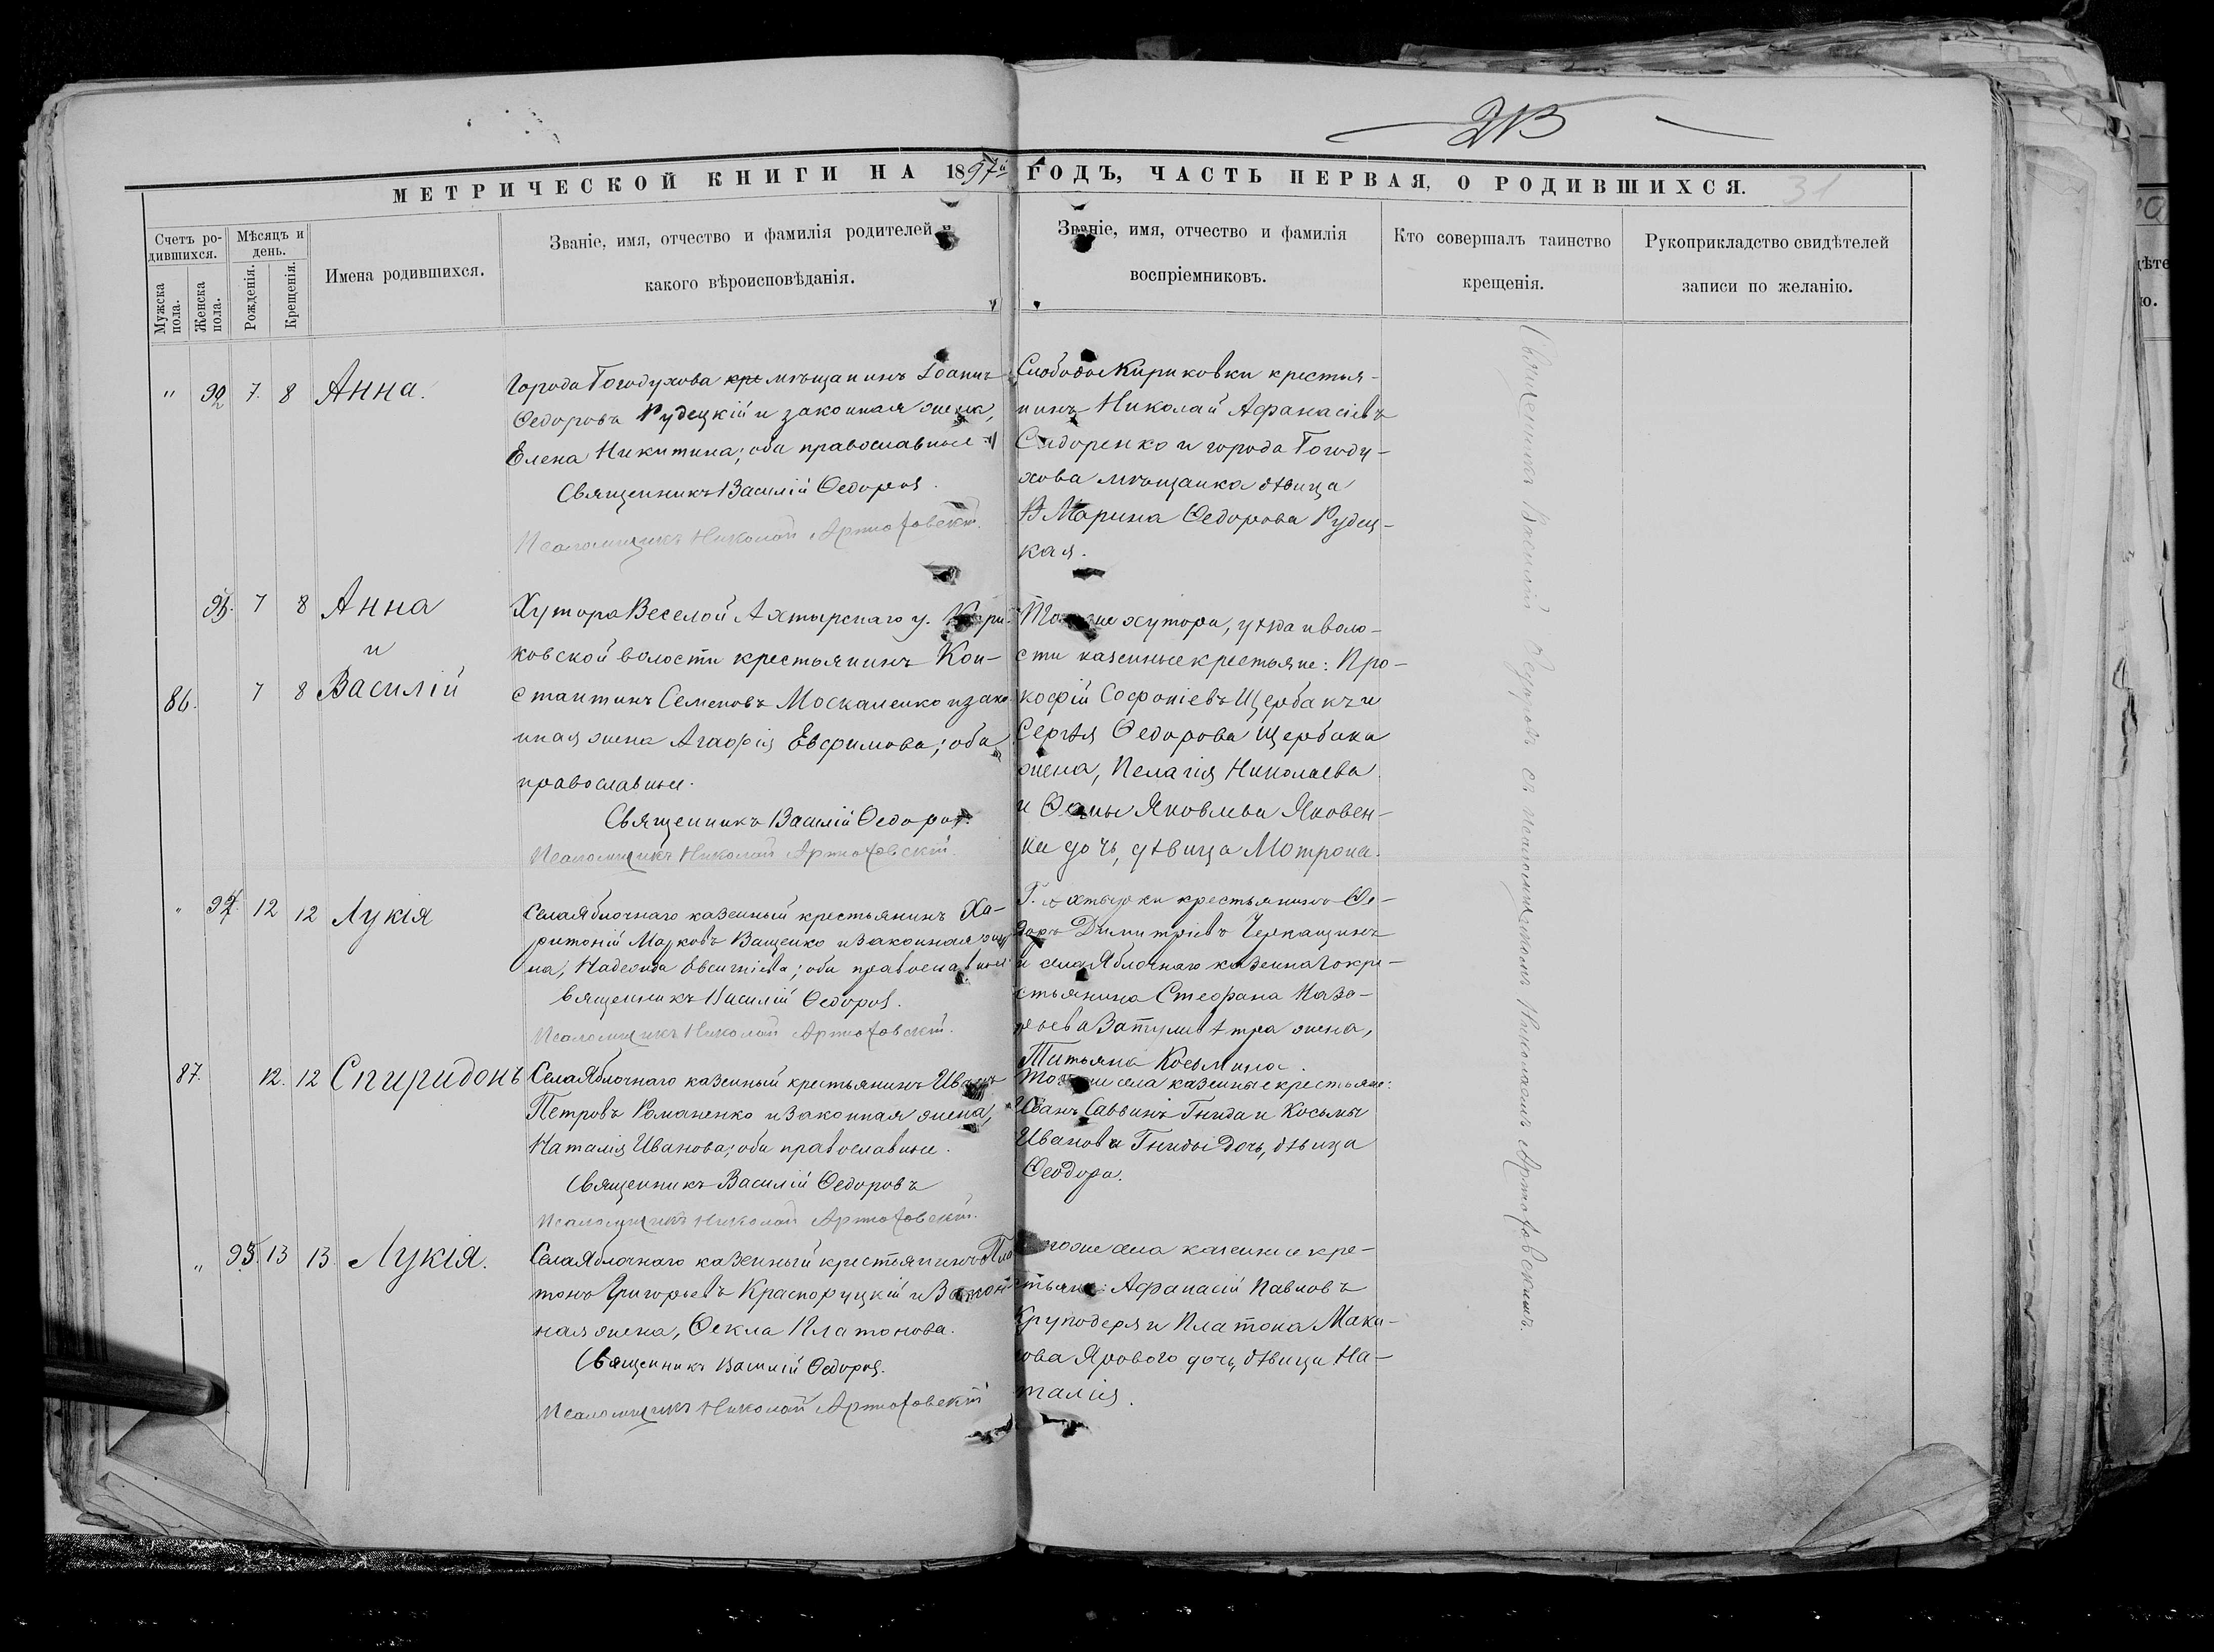 213
31
МЕТРИЧЕСКОЙ КНИГИ НА 1897й ГОДЪ, ЧАСТЬ ПЕРВАЯ, О РОДИВШИХСЯ.
Счетъ ро-
дившихся.
Мужска пола.
Женска пола.
Мѣсяцъ и
день.
Рожденія.
Крещенія.
Имена родившихся.
Званіе, имя, отчество и фамилія родителей и
какого вѣроисповѣданія.
Званіе, имя, отчество и фамилія
воспріемниковъ.
Кто совершалъ таинство
крещенія.
Рукоприкладство свидѣтелей
записи по желанію.
" 92 7. 8 Анна.
Города Богодухова мѣщанинъ Іоаннъ
Ѳедоровъ Рудецкій и законная жена,
Елена Никитина; оба православные
Священникъ Василій Ѳедоровъ.
Псаломщикъ Николай Артюховскій.
Слободы Кириковки крестья-
нинъ Николай Афанасіевъ
Сидоренко и города Богоду-
хова мѣщанка дѣвица
Марина Ѳедорова Рудец-
кая.
93. 7 8 Анна
и
86. 7 8 Василій
Хутора Веселой Ахтырскаго у. Кири-
ковской волости крестьянинъ Кон-
стантинъ Семеновъ Москаленко и зако-
нная жена Агафія Евфимова; оба
православные.
Священникъ Василій Ѳедоровъ.
Псаломщикъ Николай Артюховскій.
Того же хутора, уѣзда и воло-
сти казенные крестьяне: Про-
кофій Софоніевъ Щербакъ и
Сергѣя Ѳедорова Щербака
жена, Пелагія Николаева
и Ѳомы Яковлева Яковен-
ка дочь, дѣвица Мотрона.
" 94. 12 12 Лукія
Села Яблочнаго казенный крестьянинъ Ха-
ритоній Марковъ Ващенко и законная же-
на, Надежда Евсигніева; оба православные
Священникъ Василій Ѳедоровъ.
Псаломщикъ Николай Артюховскій.
Г. Ахтырки крестьянинъ Ѳе-
доръ Димитріевъ Черкащинъ
и села Яблочнаго казеннаго кре-
стьянина Стефана Наза-
рьева Затуливѣтра жена,
Татьяна Косьмина.
87. 12. 12 Спиридонъ
Села Яблочнаго казенный крестьянинъ Иванъ
Петровъ Романенко и законная жена,
Наталія Иванова; оба православные.
Священникъ Василій Ѳедоровъ
Псаломщикъ Николай Артюховскій.
Того же села казенные крестьяне:
Иванъ Саввинъ Гнида и Косьмы
Иванова Гниды дочь, дѣвица
Ѳеодора.
" 95. 13 13. Лукія.
Села Яблочнаго казенный крестьянинъ Пла-
тонъ Григорьевъ Красноруцкій и закон-
ная жена, Ѳекла Платонова.
Священникъ Василій Ѳедоровъ.
Псаломщикъ Николай Артюховскій
Того же села казенные кре-
стьяне: Афанасій Павловъ
Круподеря и Платона Мака-
рова Ярового дочь, дѣвица На-
талія.
Священникъ Василій Ѳедоровъ съ псаломщикомъ Николаемъ Артюховскимъ.